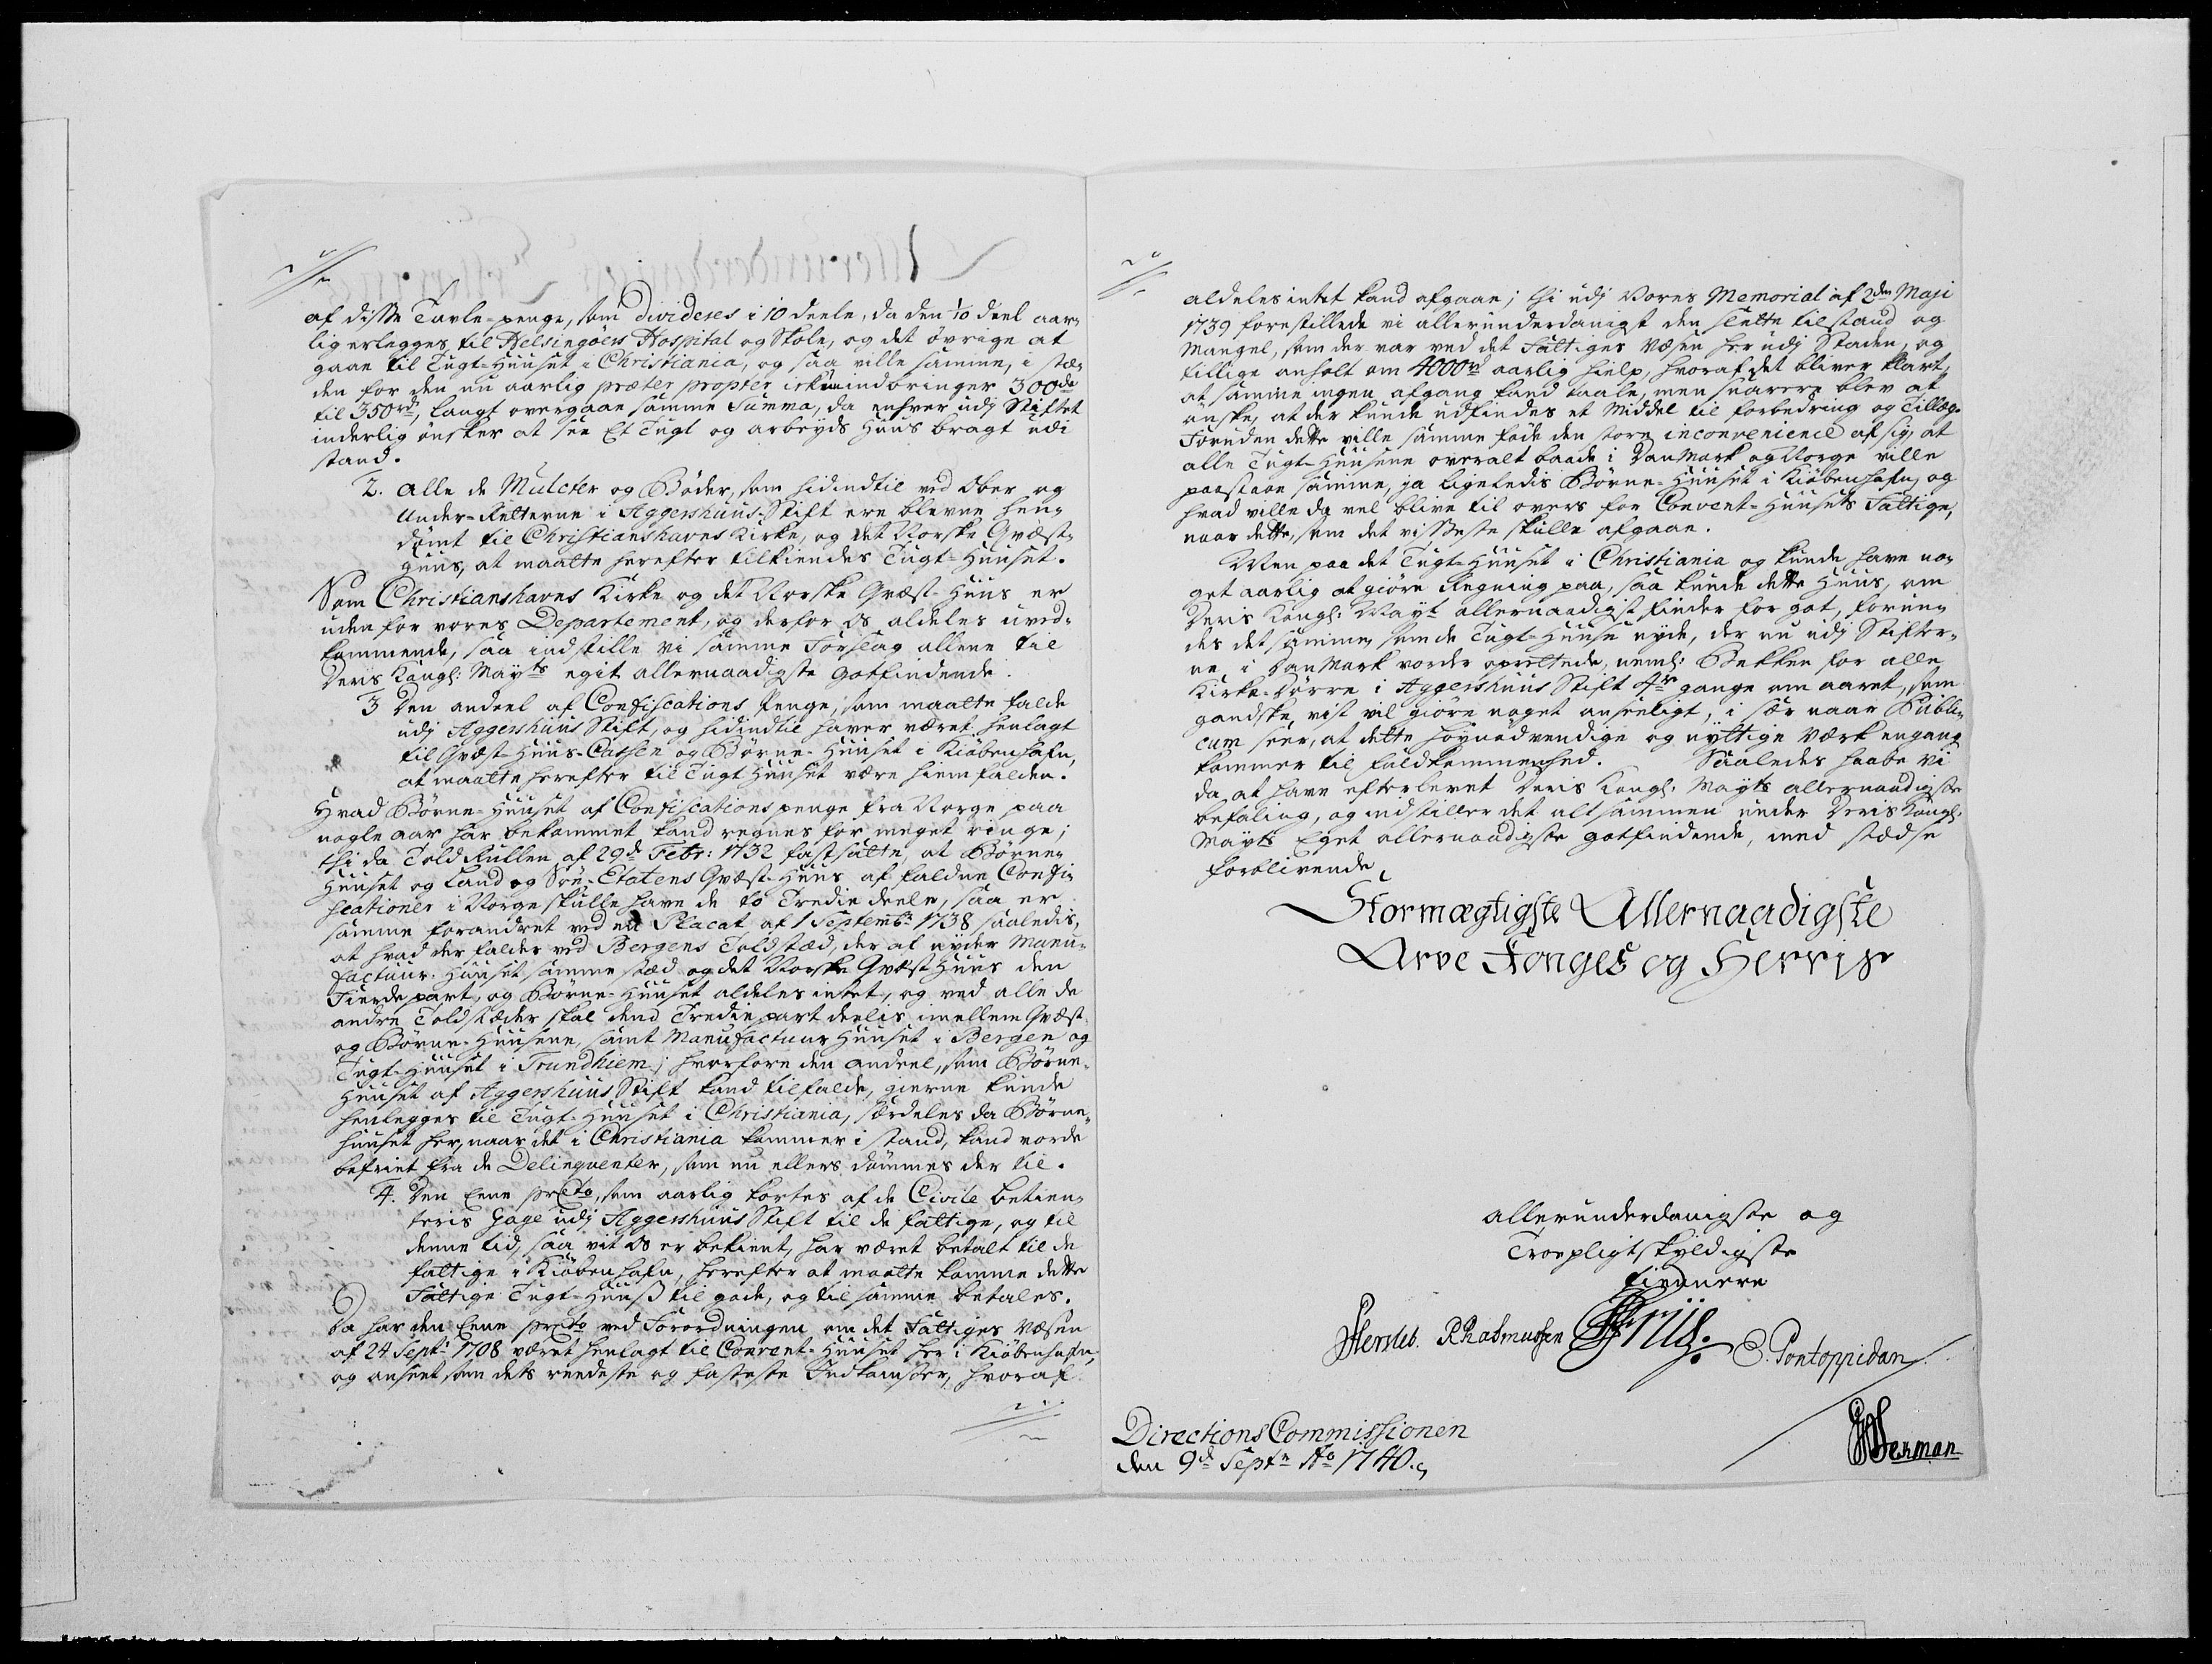 af disse Tavle-penge, som divideres i 10 deele, da den 1/10 deel aar-
lig erlegges til Helsingöers Hospital og Skole, og det övrige at
gaae til Tugt-Huuset i Christiania, og saa ville samme, i stæ-
den for den nu aarlig præter propter indbringer 300de
til 350rd, langt overgaae samme Summa, da enhver udj Stiftet
inderlig önsker at see Et Tugt og arbeyds Huus bragt udi
stand.
2. Alle de Mulcter og Böder, som hidindtil ved Ober og
Under-Retterne i Aggershuus-Stift ere blevne hen-
dömt til Christianshavns Kirke, og det Norske Qvæst-
huus, at maatte herefter tilkiendes Tugt-Huuset.
Som Christianshavns Kirke og det Norske Qvæst-Huus er
uden for vores Departement, og derfor os aldeles uved-
kommende, saa indstille vi samme Forslag allene til
Deris Kongl: Mayts egit allernaadigste gotfindende.
3 Den andeel af Confiscations Penge, som maatte falde
udj Aggershuus Stift, og hidindtil haver været henlagt
til Qvæst-Huus-Cassen og Börne-Huuset i Kiöbenhafn,
at maatte herefter til Tugt Huuset være hiemfalden.
Hvad Börne-Huuset af Confiscations penge fra Norge paa
nogle aar har bekommet kand regnes for meget ringe;
thi da Told Rullen af 29d Febr: 1732 fastsatte, at Börne-
Huuset og Land og Söe-Etatens Qvæst-Huus af faldne Confi-
scationer i Norge skulle have de to Tredie deele, saa er
samme forandret ved en Placat af 1 Septembr 1738 saaledis,
at hvad der falder ved Bergens Toldstæd, der af nyder Manu-
factuur-Huuset samme stæd og det Norske Qvæst-Huus den
Fierde part, og Börne-Huuset aldeles intet, og ved alle de
andre Toldstæder skal dend Tredie part deelis imellem Qvæst-
og Börne-Huusene, samt Manufactuur Huuset i Bergen og
Tugt-Huuset i Trundhiem; hvorfore den andeel, som Börne-
Huuset af Aggershuus Stift kand tilfalde, gierne kunde
henlegges til Tugt-Huuset i Christiania, særdeles da Börne-
huuset her, naar det i Christiania kommer i stand, kand vorde
befriet fra de Delinqventer, som nu ellers dömmes der til.
4. Den Eene prCto, som aarlig kortes af de Civile betien-
teris Gage udj Aggershuus Stift til de fattige, og til
denne tid, saa vit os er bekient, har været betalt til de
fattige i Kiöbenhafn, herefter at maatte komme dette
Fattige Tugt-Huuß til gode, og til samme betales.
Da har den Eene prCto ved Forordningen om det Fattiges Væsen
af 24 Sept: 1708 været henlagt til Convent-Huuset her i Kiöbenhafn,
og anseet som dets reedeste og fasteste Indkomster, hvoraf
aldeles intet kand afgaae; thi udj Vores Memorial af 2den Maji
1739 forestillede vi allerunderdanigst den slette tilstand og
Mangel, som der var ved det Fattiges Væsen her udj Staden, og
tillige anholt om 4000rd aarlig hielp, hvoraf det bliver klart,
at samme ingen afgang kand taale, men snarere blev at
önske, at der kunde udfindes et Middel til forbedring og Tillæg.
Foruden dette ville samme föde den store inconvenience af sig, at
alle Tugt-Huusene overalt baade i Danmark og Norge ville
paastaae samme, ja ligeledis Börne-Huuset i Kiöbenhafn, og
hvad ville da vel blive til overs for Convent-Huusets Fattige,
naar dette, som det visseste skulle afgaae.
Men paa det Tugt-Huuset i Christiania og kunde have no-
get aarlig at giöre Regning paa, saa kunde dette Huus, om
Deris Kongl: Mayt allernaadigst finder for got, forun-
des det samme, som de Tugt-Huuse nyde, der nu udj Stifter-
ne i Danmark vorder oprettede, neml: Bekken for alle
Kirke-Dörre i Aggershuus Stift 4re gange om aaret, som
gandske vist vil giöre noget anseeligt, i sær naar Publi-
cum seer, at dette höynödvendige og nyttige Værk engang
kommer til fuldkommenhed. Saaledes haabe vi
da at have efterlevet Deris Kongl: Mayts allernaadigste
befaling, og indstiller det alt sammen under Deris Kongl:
Mayts Eget allernaadigste gotfindende, med stædse
forblivende
Stormægtigste Allernaadigste
Arve Konges og Herris
allerunderdanigste og
Troepligtskyldigste
tienere
Hersleb. R Rasmussen Friis. E. Pontoppidan
JHerman
Directions Commissionen
den 9d Septr Ao 1740.